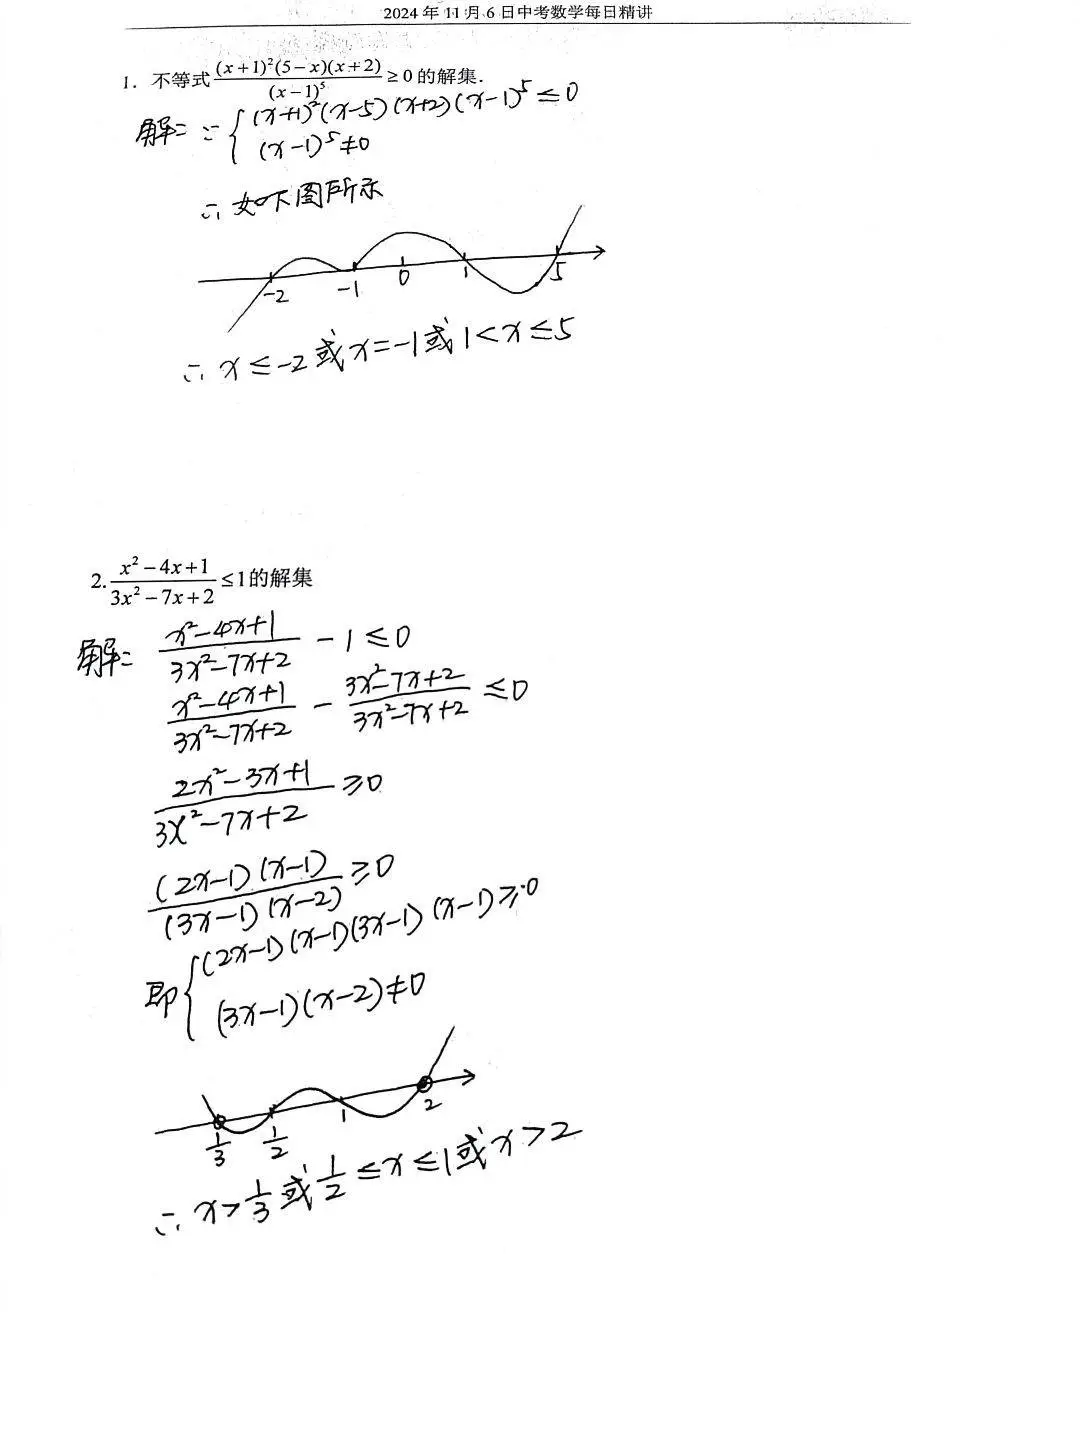 2024年11月6日中考数学每日精讲
1. 不等式 (x+1)²(5−x)(x+2)/(x−1)⁵ ≥0 的解集.
解: ∵ { (x+1)²(x-5)(x+2)(x-1)⁵≤0
(x-1)⁵≠0
∴ 如下图所示
-2 -1 0 1 5
∴ x≤-2或x=-1或1<x≤5
2. x²−4x+1/3x²−7x+2 ≤1的解集
解: x²-4x+1/3x²-7x+2 - 1≤0
x²-4x+1/3x²-7x+2 - 3x²-7x+2/3x²-7x+2 ≤0
2x²-3x+1/3x²-7x+2 ≥0
(2x-1)(x-1)/(3x-1)(x-2) ≥0
即 { (2x-1)(x-1)(3x-1)(x-1)≥0
(3x-1)(x-2)≠0
1/3 1/2 1 2
∴ x>1/3或1/2≤x≤1或x>2